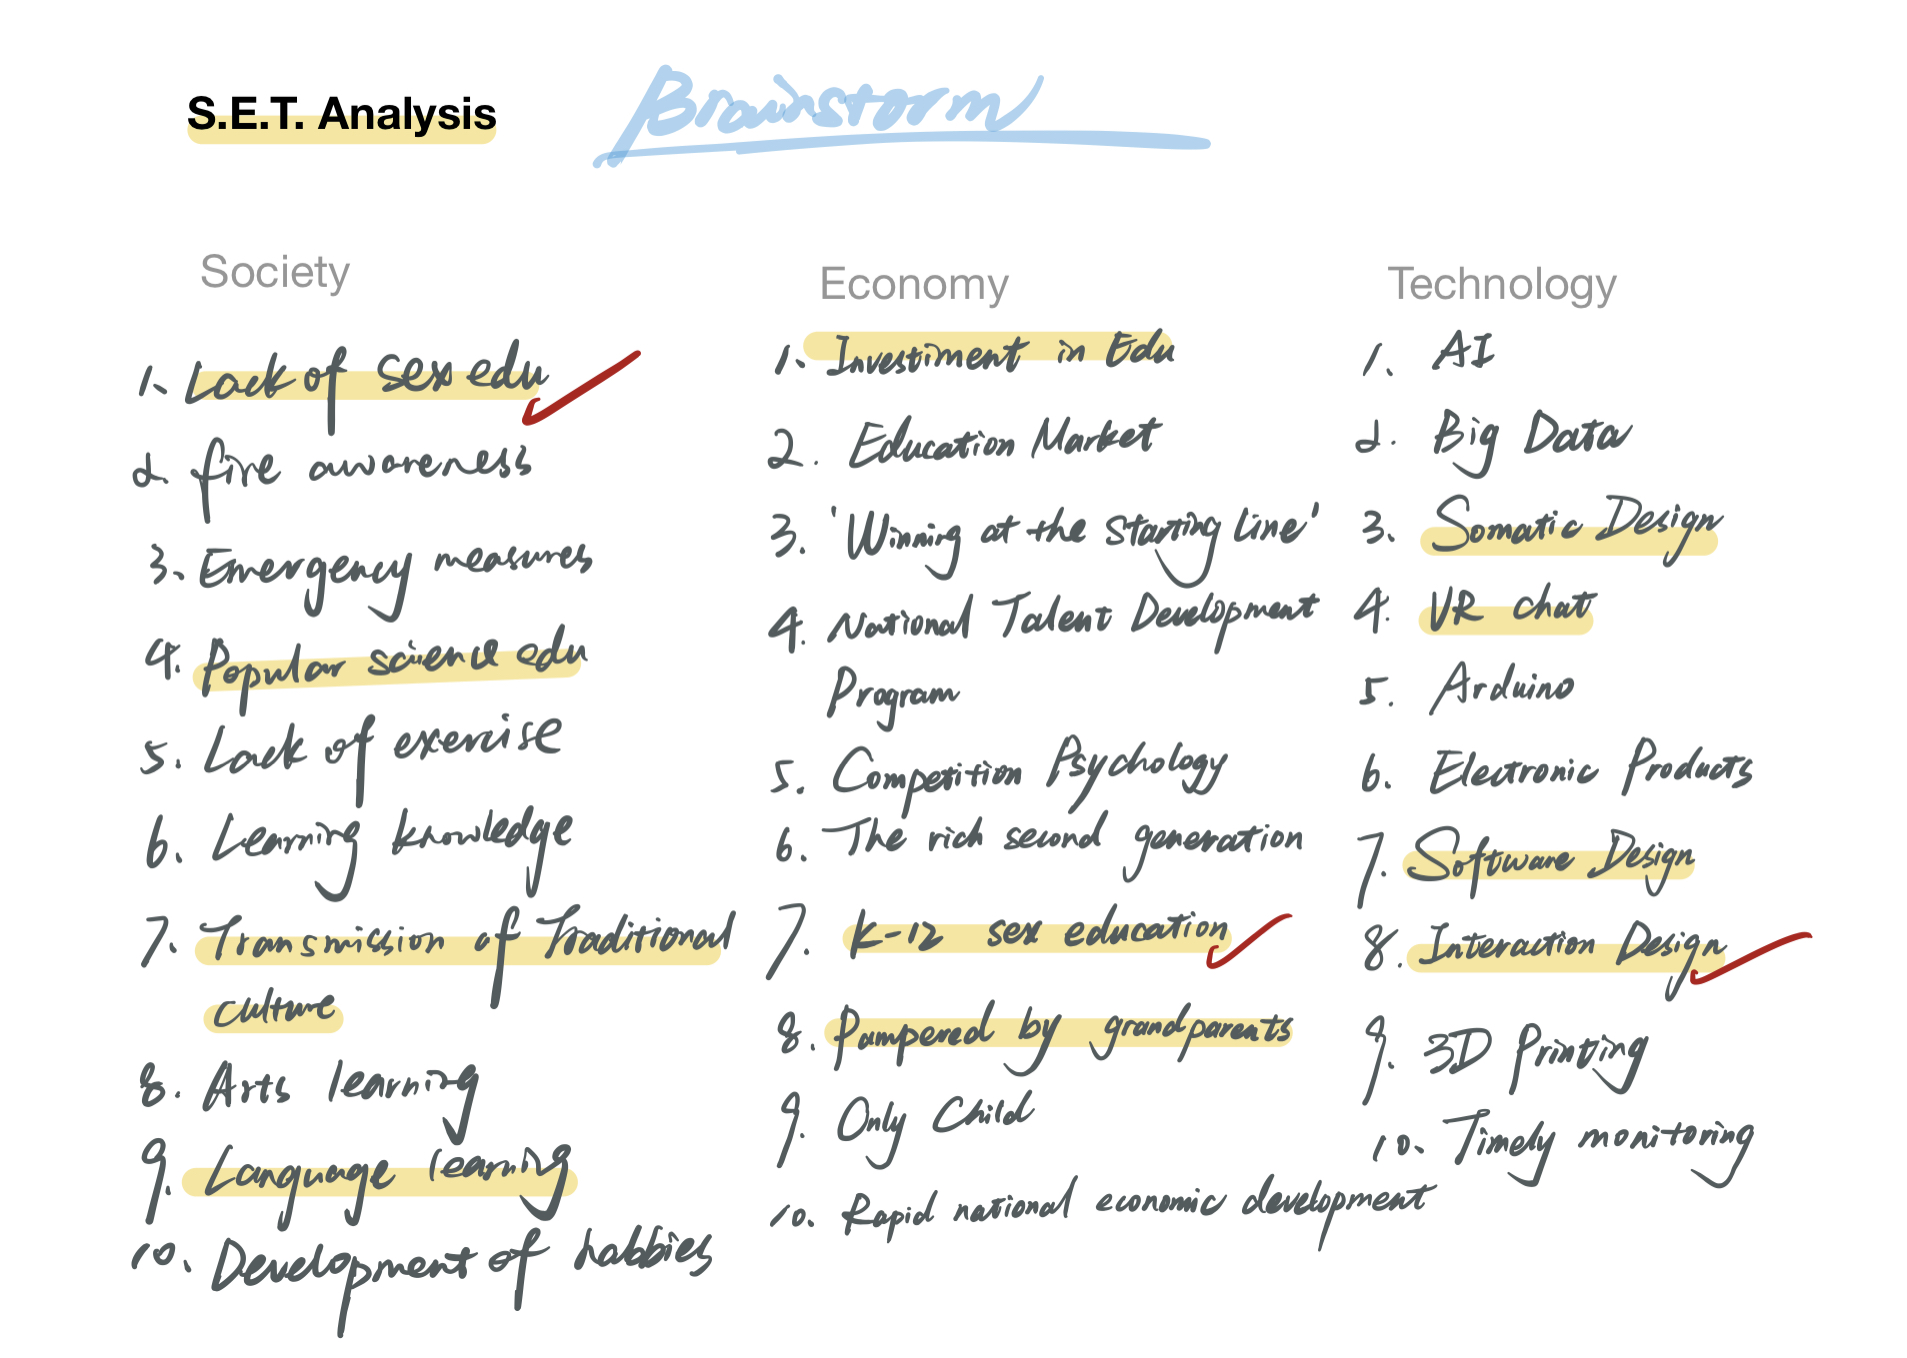 S.E.T. Analysis
Brainstorm
Society
1. Lack of sex edu
2. fire awareness
3. Emergency measures
4. Popular science edu
5. Lack of exercise
6. Learning knowledge
7. Transmission of Traditional
culture
8. Arts learning
9. Language learning
10. Development of hobbies
Economy
1. Investiment in Edu
2. Education Market
3. 'Winning at the starting line'
4. National Talent Development
Program
5. Competition Psychology
6. The rich second generation
7. K-12 sex education
8. Pampered by grandparents
9. Only Child
10. Rapid national economic development
Technology
1. AI
2. Big Data
3. Somatic Design
4. VR chat
5. Arduino
6. Electronic Products
7. Software Design
8. Interaction Design
9. 3D Printing
10. Timely monitoring